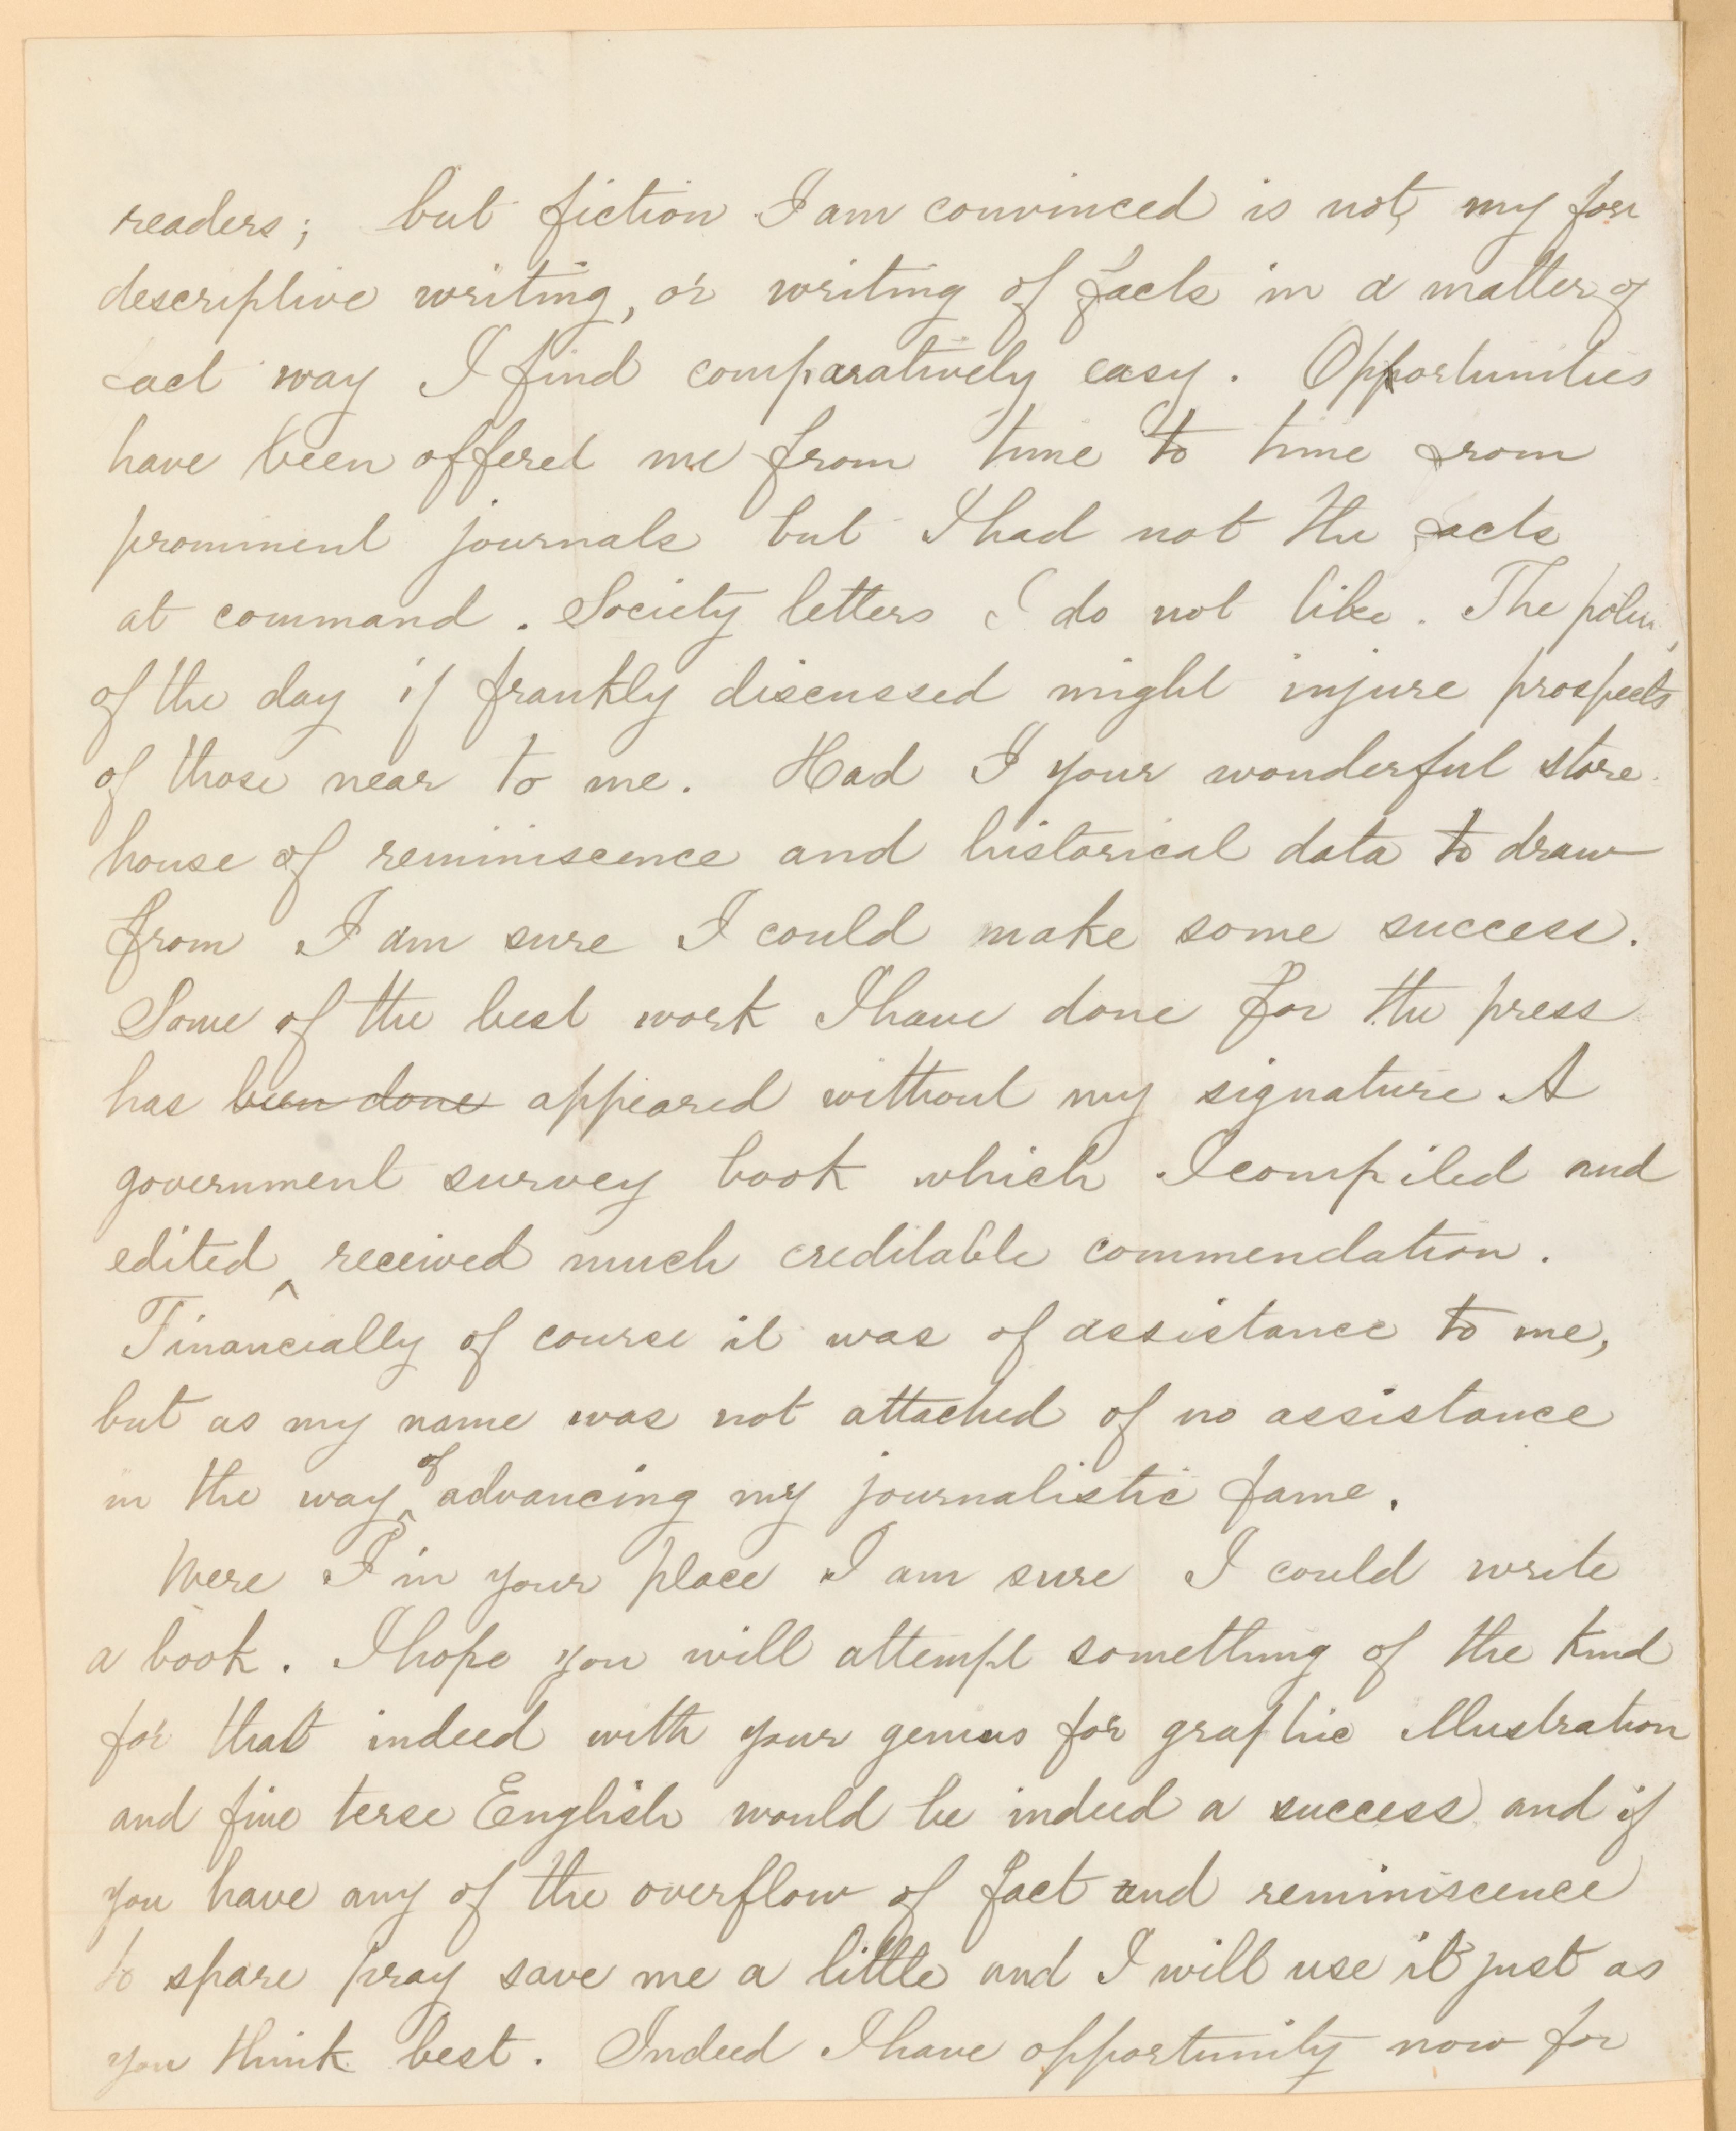 readers; but fiction I am convinced is not my for
descriptive writing, or writing of facts in a matter of
fact way I find comparatively easy. Opportunities
have been offered me from time to time from
prominent journals but I had not the facts
at command. Society letters I do not like. The
of the day if frankly discussed might injure prospects
of those near to me. Had I your wonderful store
house of reminiscence and historical data to draw
from I am sure I could make some success.
Some of the best work I have done for the press
has been done appeared without my signature. A
government survey book which I compiled and
edited ^ received much creditable commendation.
Financially of course it was of assistance to me,
but as my name was not attached of no assistance
in the way ^of advancing my journalistic fame.
Were I in your place I am sure I could write
a book. I hope you will attempt something of the kind
for that indeed with your genius for graphic illustration
and fine terse English would be indeed a success and if
you have any of the overflow of fact and reminiscence
to spare pray save me a little and I will use it just as
you think best. Indeed I have opportunity now for